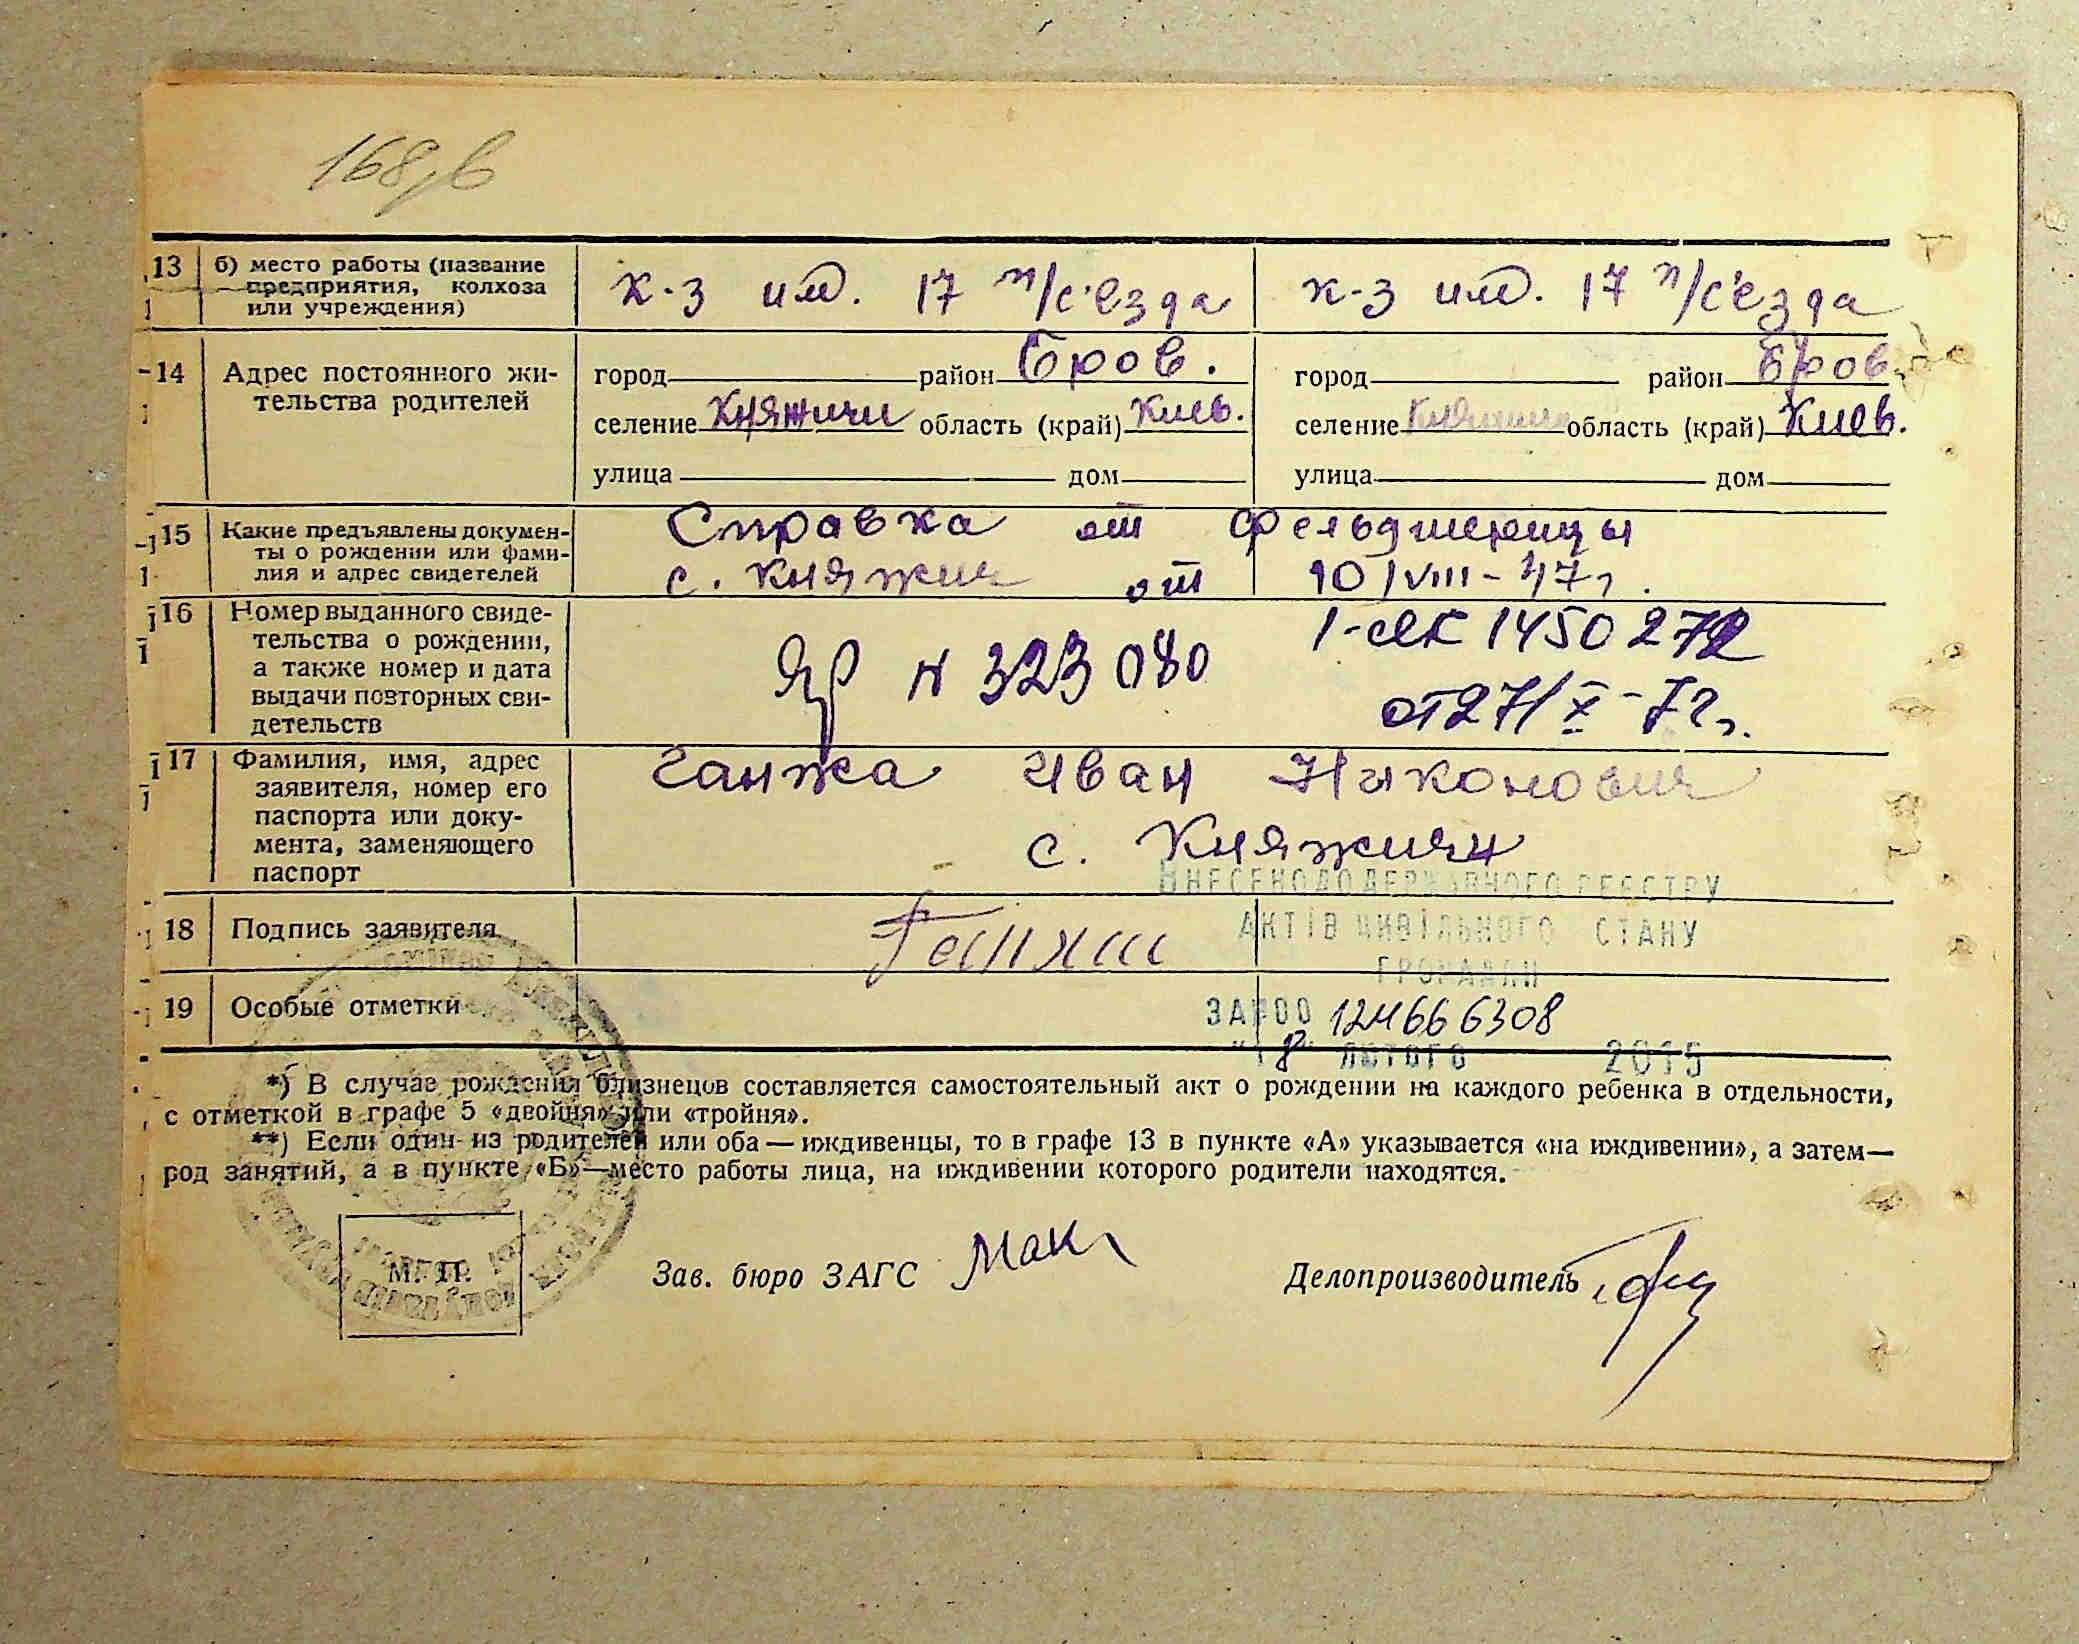 168,в
13 б) место работы (название предприятия, колхоза или учреждения)
к-з им. 17 п/с'езда
к-з им. 17 п/с'езда
14 Адрес постоянного жи-
тельства родителей
город район Бров. город район Бров.
селение Княжичи область (край) Киев. селение Княжичи область (край) Киев.
улица дом улица дом
15 Какие предъявлены докумен-
ты о рождении или фами-
лия и адрес свидетелей
Справка от фельдшерицы
с. Княжичи от 10/VIII-47г.
16 Номер выданного свиде-
тельства о рождении,
а также номер и дата
выдачи повторных сви-
детельств
ЯР N 323080
1-
1450272
от 27/X-72г.
17 Фамилия, имя, адрес
заявителя, номер его
паспорта или доку-
мента, заменяющего
паспорт
Ганжа Иван Никонович
с. Княжичи
ВНЕСЕНО ДО ДЕРЖАВНОГО РЕЄСТРУ
АКТІВ ЦИВІЛЬНОГО СТАНУ
ГРОМАДЯН
18 Подпись заявителя
19 Особые отметки
ЗА №00 124666308
"18" ЛЮТОГО 2015
*) В случае рождения близнецов составляется самостоятельный акт о рождении на каждого ребенка в отдельности,
с отметкой в графе 5 «двойня» или «тройня».
**) Если один из родителей или оба — иждивенцы, то в графе 13 в пункте «А» указывается «на иждивении», а затем—
род занятий, а в пункте «Б»—место работы лица, на иждивении которого родители находятся.
М. П.
Зав. бюро ЗАГС Мак
Делопроизводитель